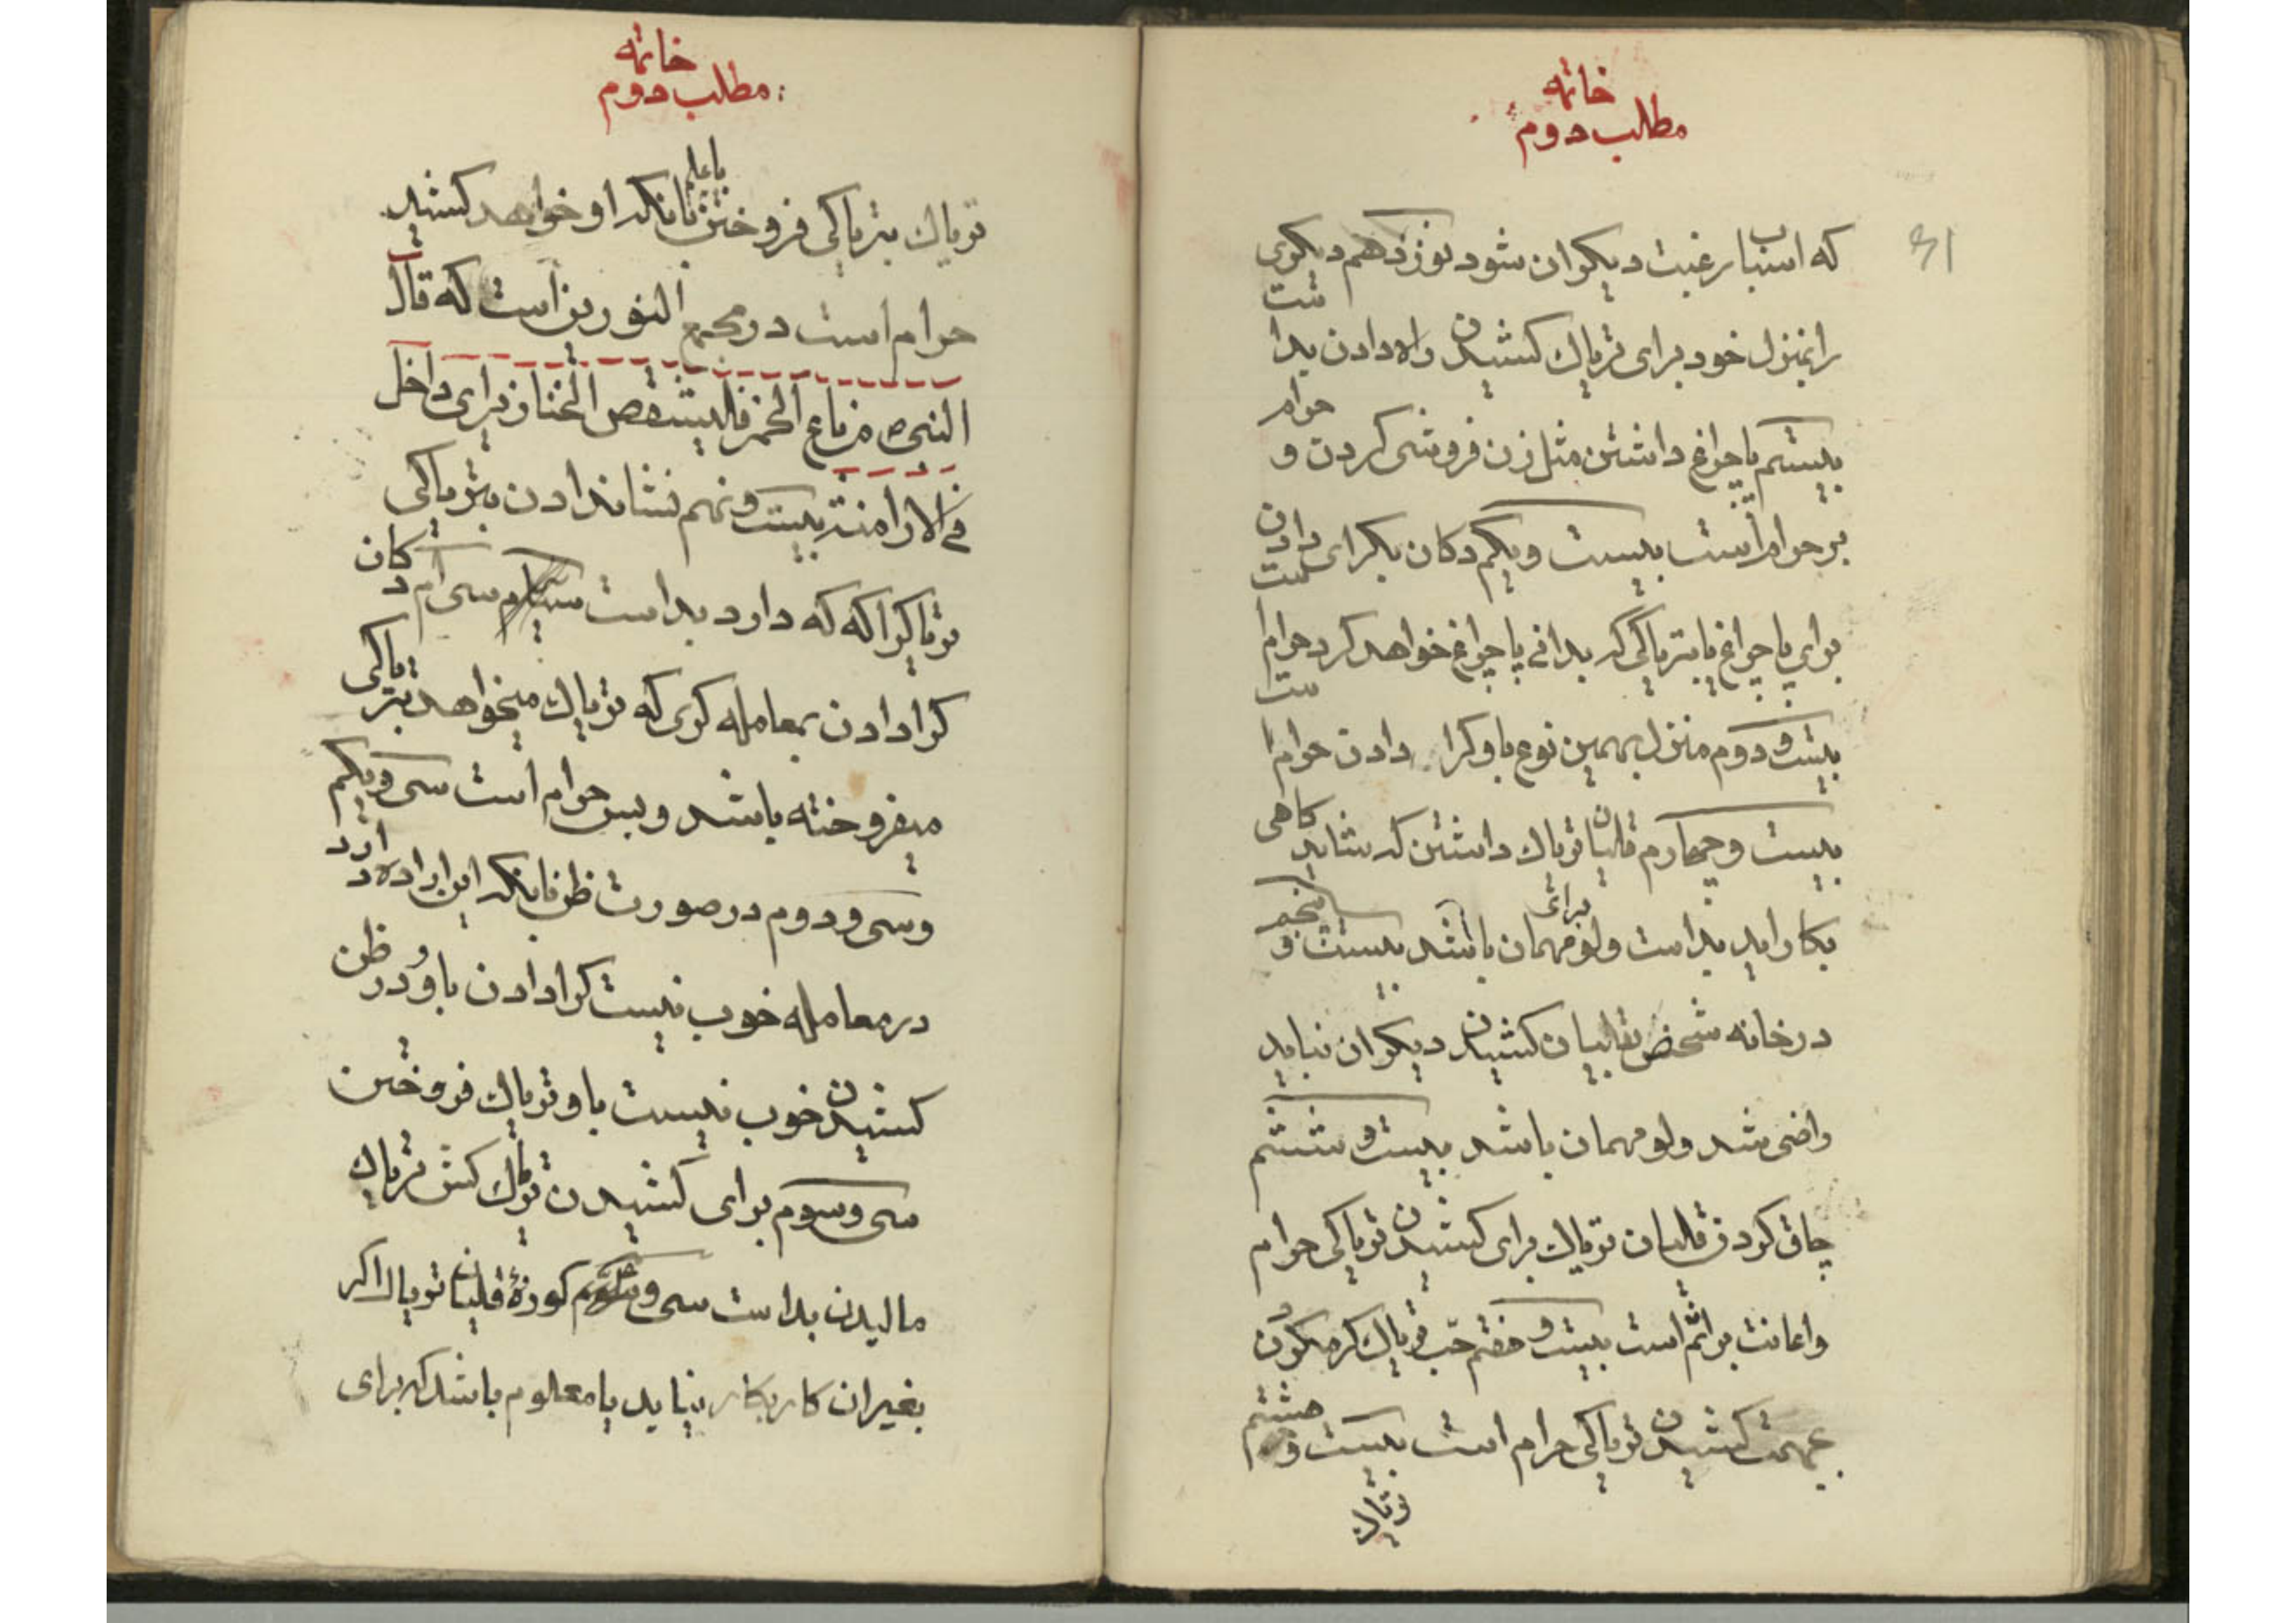 خاتمه
مطلب دوم
که اسباب رغبت دیکران شود نوزدهم دیکری
را بمنزل خود برای تریاك کشیدن راه دادن بد است
بیستم پا چراغ داشتن مثل زن فروشی کردن و حرام
بر حرام است بیست و یکم دکان بکرای دادن
برای پا چراغ یا بتریاکی که بدانی پا چراغ خواهد کرد حرام است
بیست و دوم منزل بهمین نوع باو کرا دادن حرام است
بیست و چهارم قلیان تریاك داشتن که شاید کاهی
بکار اید بد است ولو برای مهمان باشد بیست و پنجم
در خانه شخص بقلیان کشیدن دیکران نباید
راضی شد ولو مهمان باشد بیست و ششم
چاق کردن قلیان تریاك برای کشیدن تریاکی حرام
و اعانت بر اثم است بیست و هفتم حب تریاك کرم کردن
بجهت کشیدن تریاکی حرام است بیست و هشتم
تریاك
خاتمه
مطلب دوم
تریاك بتریاکی فروختن با علم بانکه او خواهد کشید
حرام است در مجمع النورین است که قال
النبی ص من باع الخمر فلیشقص الخنازیر ای داخل
فی الا را منته بیست و نهم نشان دادن بتریاکی
تریاك را که که دارد بد است سی ام دکان
کرا دادن بمعامله کری که تریاك میخواهد بتریاکی
میفروخته باشد و بس حرام است سی و یکم
و سی و دوم در صورت ظن بانکه این اراده دارد
در معامله خوب نیست کرا دادن باو و در ظن
کشیدن خوب نیست باو تریاك فروختن
سی و سوم برای کشیدن تریاك کش تریاك
مالیدن بد است سی و کوزهٔ قلیان تریاك اکر
بغیر ان کار بکار نیاید یا معلوم باشد که برای